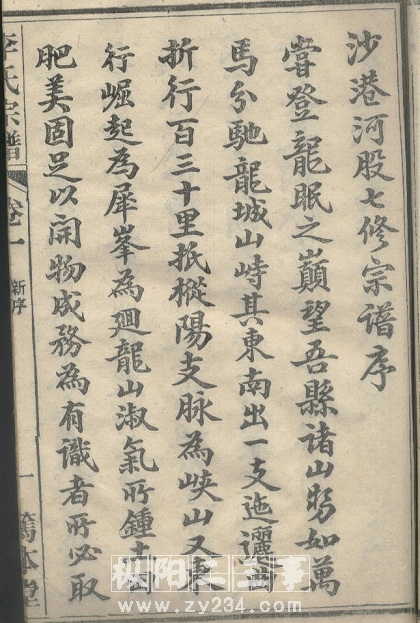 沙港河股七修宗譜序
嘗登龍眠之巔望吾縣諸山勢如萬
馬分馳龍城山峙其東南出一支迤邐曲
折行百三十里抵樅陽支脉為峡山又東
行崛起為犀峯為廻龍山淑氣所鍾土田
肥美固足以開物成務為有識者所必取
李氏宗譜
卷一
新序
一
篤本堂
枞阳二三事
www.zy234.com